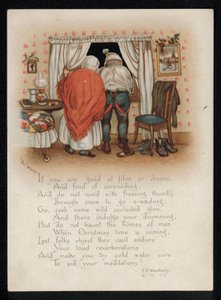 If you are good at fifes or drums,
And fond of serenading,
And do not mind with freezing thumbs
Through snow to go a-wading,
Go, seek some wild secluded glen,
And there indulge your drumming,
But do not haunt the homes of men
When Christmas time is coming,
Lest folks object they can't endure
Your loud reverberations
And make you try cold water cure
To aid your meditations!
F.E. Weatherly.